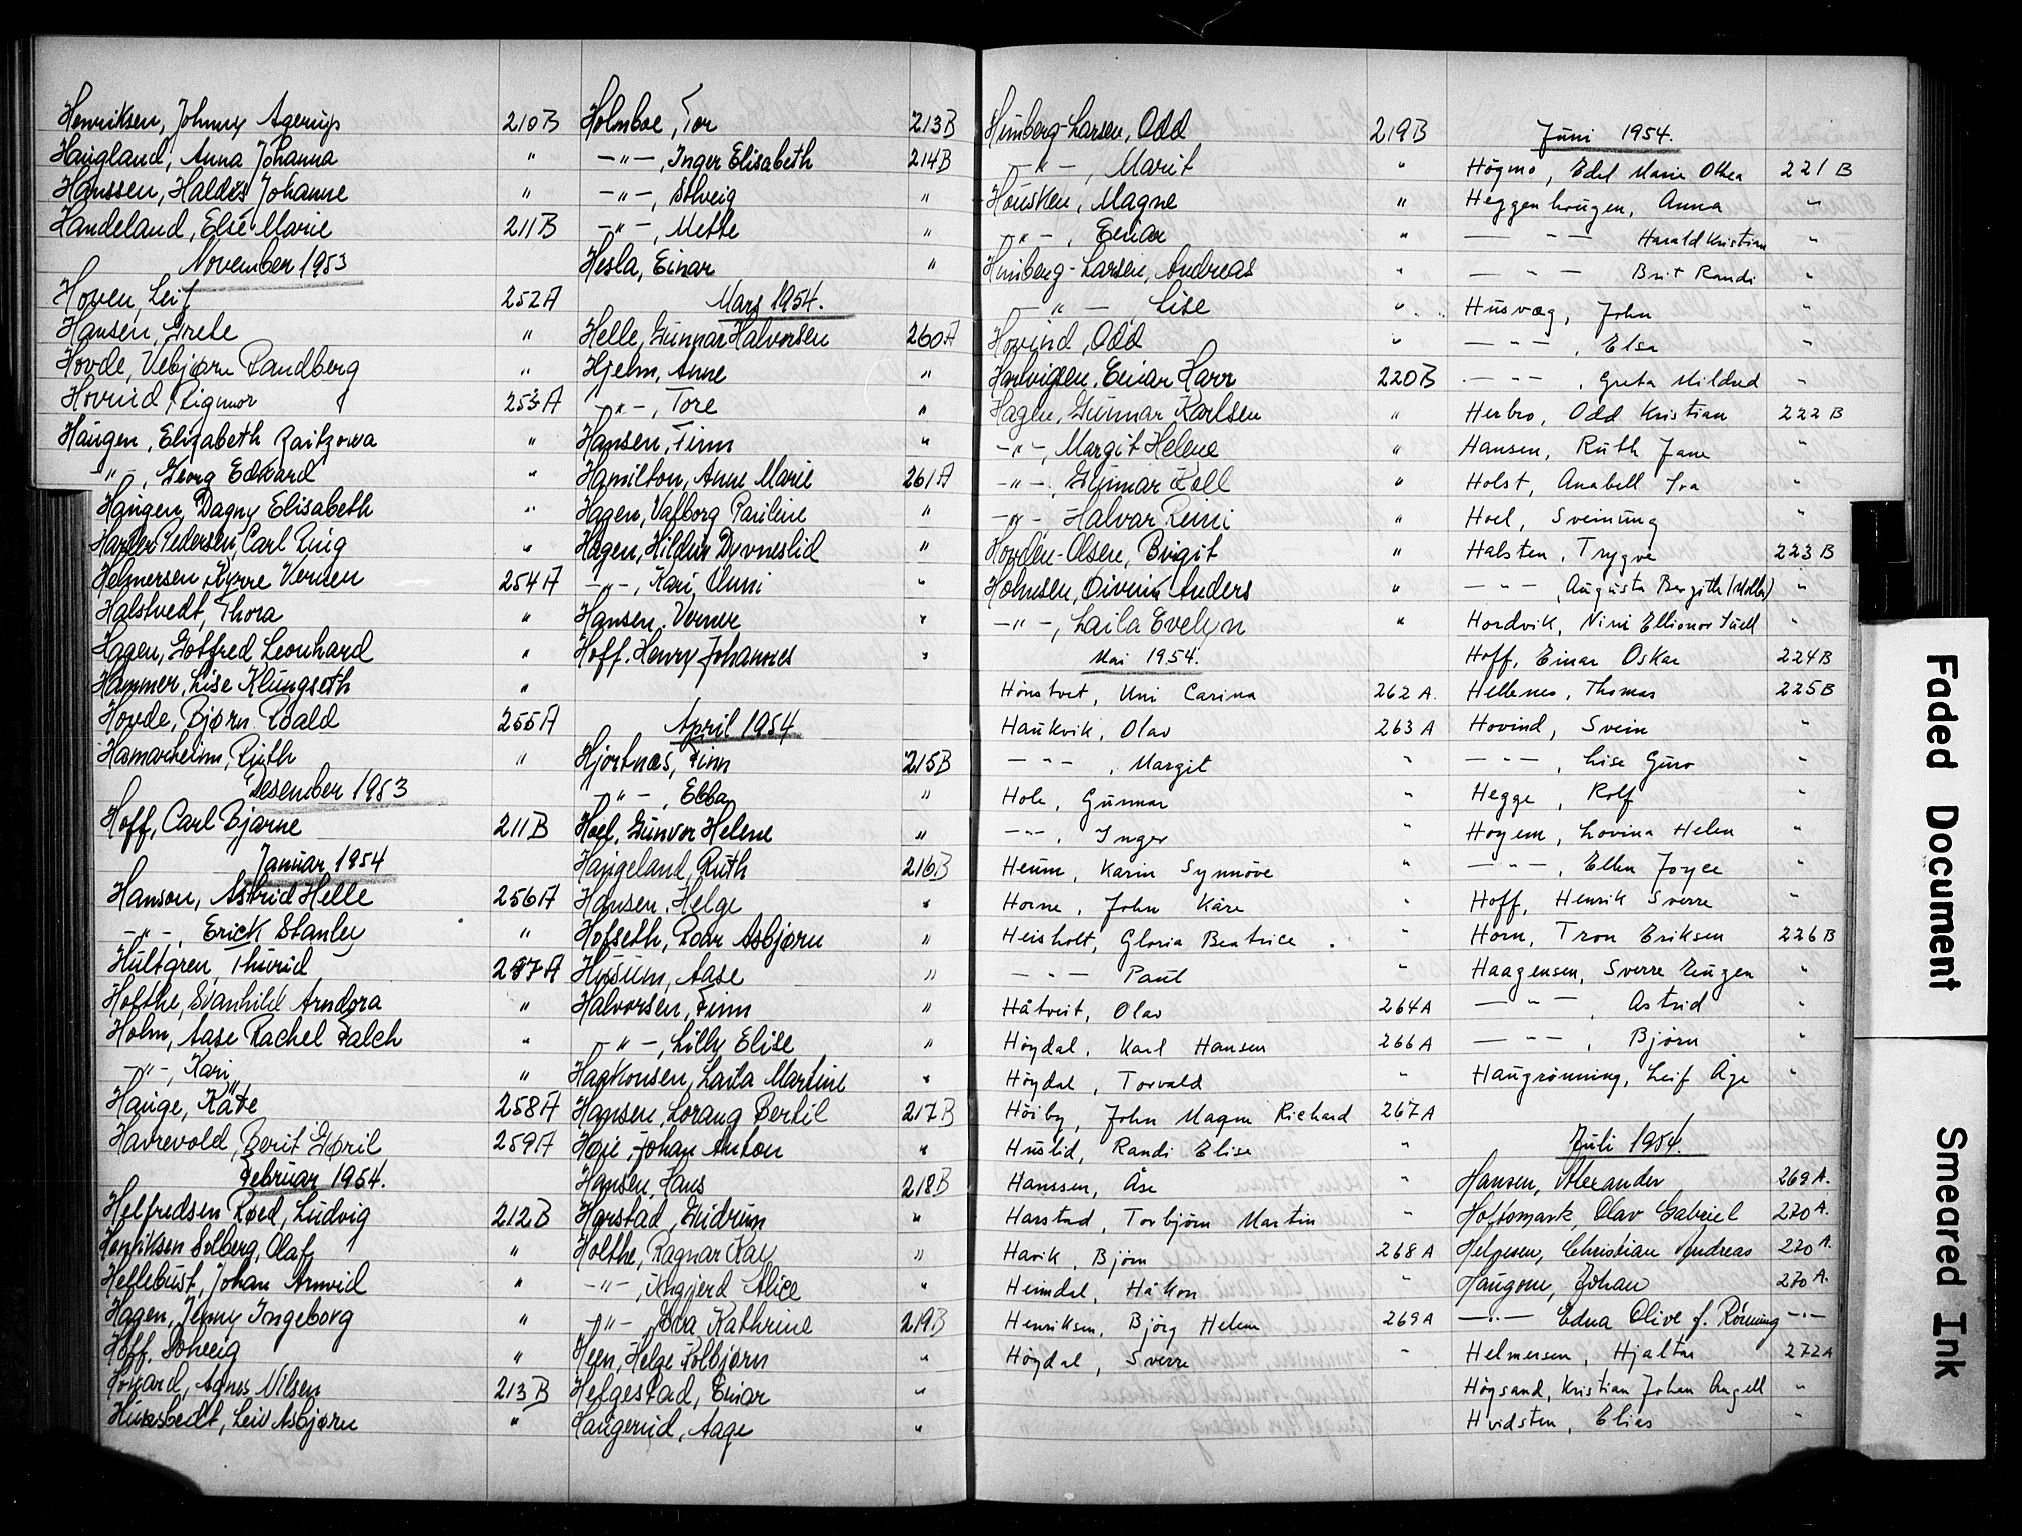 Henriksen, Johnny Agerup 210B
Haugland, Anna Johanna "
Hanssen, Haldis Johanne "
Handeland, Else Marie 211B
November 1953
Hoven, Leif 252A
Hansen, Grete "
Hovde, Vebjørn Sandberg "
Hovind, Sigmor 253A
Haugen, Elizabeth Zaitzowa "
-"-, Georg Edvard "
Haugen, Dagny Elisabeth "
Harder Pedersen, Carl Ring "
Helmersen, Kyrre Vensen 254A
Halstvedt, Thora "
Hagen, Gotfred Leonhard "
Hammer, Lise Klungseth "
Hovde, Bjørn Roald 255A
Hamarheim, Ruth "
Desember 1953
Hoff, Carl Bjarne 211B
Januar 1954
Hanson, Astrid Helle 256A
-"-, Erick Stanley "
Hultgren, Thurid 257A
Holthe, Svanhild Arndora "
Holm, Aase Rachel Falch "
-"-, Kari "
Hauge, Käte 258A
Havrevold, Berit Gøril 259A
Februar 1954.
Helfredsen Røed, Ludvig 212B
Henriksen Solberg, Olaf "
Hellebust, Johan Arnvid "
Hagen, Jenny Ingeborg "
Hoff, Solveig "
Howard, Agnes Nilsen 213B
Hunsbedt, Leiv Asbjørn "
Holmboe, Tor 213B
-"-, Inger Elisabeth 214B
-"-, Solveig "
-"-, Mette "
Hesla, Einar "
Mars 1954.
Helle, Gunnar Halvorsen 260A
Hjelm, Anne "
-"-, Tore "
Hansen, Finn "
Hamilton, Anne Marie 261A
Hagen, Valborg Pauline "
Hagen, Hildur Dyvneslid "
-"-, Kari Unni "
Hansen, Verner "
Hoff, Henry Johannes "
April 1954
Hjortnæs, Finn 215B
-"-, Ebba "
Hoel, Gunvor Helene "
Haugeland, Ruth 216B
Hansen, Helge "
Hofseth, Roar Asbjørn "
Hyssum, Aase "
Halvorsen, Finn "
-"-, Lilly Elise "
Haakonsen, Laila Martine "
Hansen, Lorang Bertil 217B
Høie, Johan Anton "
Hansen, Hans 218B
Harstad, Gudrun "
Holthe, Ragnar Kai "
-"-, Ingjerd Alice "
-"-, Eva Kathrine 219B
Heen, Helge Kolbjørn "
Helgestad, Einar "
Haugerud, Aage "
Humberg-Larsen, Odd 219B
-"-, Marit "
Housken, Magne "
-"-, Einar "
Humberg-Larsen, Andreas "
-"-, Lise "
Hovind, Odd "
Hartvigsen, Einar Harr 220B
Hagen, Gunnar Karlsen "
-"-, Margit Helene "
-"-, Gunnar Koll "
-"- Halvar Remi "
Hovden-Olsen, Birgit "
Holmsen, Øivind Anders "
-"-, Laila Evelyn "
Mai 1954.
Hönstvet, Uni Carina 262A.
Haukvik, Olav 263A
-"-, Margit "
Hole, Gunnar "
-"-, Inger "
Heum, Karin Synnöve "
Horne, John Kåre "
Heisholt, Gloria Beatrice "
-"- Paul "
Håtveit, Olav 264A
Höydal, Karl Hansen 266A
Höydal, Torvald "
Höiby, John Magne Richard 267A
Huslid, Randi Elise "
Hanssen, Åse "
Harstad, Torbjörn Martin "
Havik, Björn 268A
Heimdal, Håkon "
Henriksen, Björg Helene 269A
Höydal, Sverre "
Juni 1954.
Högmo, Edel Marie Othea 221B
Heggenhougen, Anna "
-"- Harald Kristian "
-"- Brit Randi "
Husvæg, John "
-"-, Elsa "
-"-, Greta Mildred "
Herbro, Odd Kristian 222B
Hansen, Ruth Jane "
Holst, Anabell Iva "
Hoel, Sveinung "
Halsten, Trygve 223B
-"-, Augusta Bergith (Moller) "
Hordvik, Nini Ellionor Suell "
Hoff, Einar Oskar 224B
Hellenes, Thomas 225B
Hovind, Svein "
-"-, Lise Guro "
Hegge, Rolf "
Hoyem, Lovina Helen "
-"-, Ellen Joyce "
Hoff, Henrik Sverre "
Horn, Tron Eriksen 226B
Haagensen, Sverre Eugen "
-"-, Astrid "
-"-, Bjørn "
Haugrönning, Leif Åge "
Juli 1954.
Hansen, Alexander 269A.
Holtomark, Olav Gabriel 270A.
Helgesen, Christian Andreas 270A.
Haugom, Johan 270A.
-"- Edna Olive f. Rönning -"-
Helmersen, Hjaltar 272A
Högsand, Kristian Johan Angell "
Hvidsten, Elias "
Faded Document
Smeared Ink